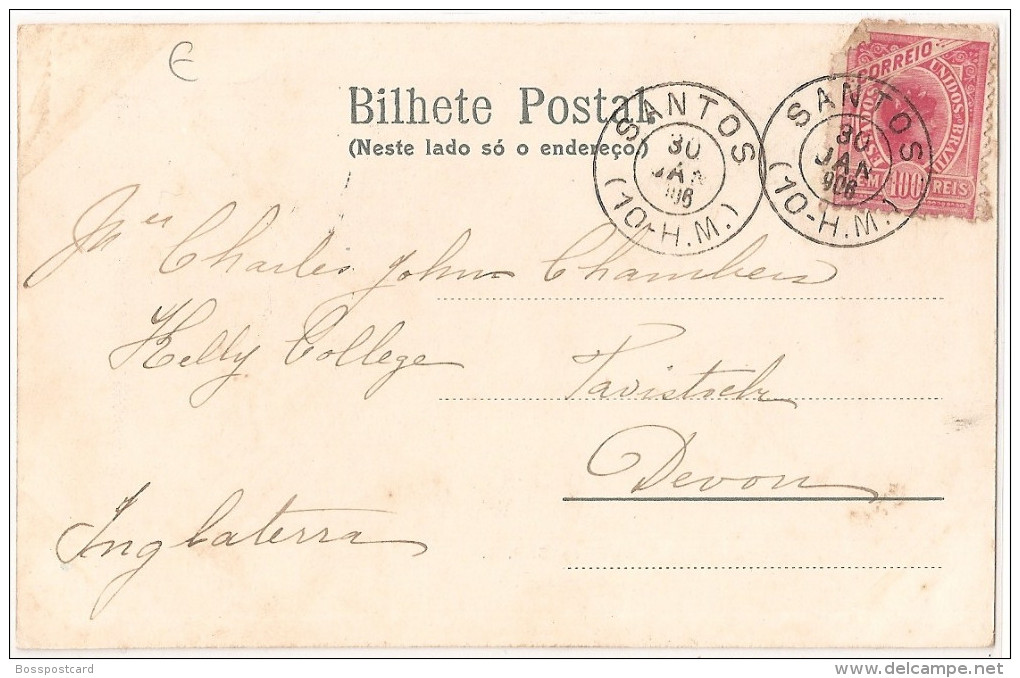 E
Bilhete Postal
(Neste lado só o endereço)
SANTOS
30
JAN
906
(10-H.M.)
SANTOS
30
JAN
906
(10-H.M.)
CORREIO
ESTADOS UNIDOS DO BRAZIL
CEM 100 REIS
Charles John Chambers
Kelly College
Devon
Inglaterra
Bosspostcard
delcampe.net